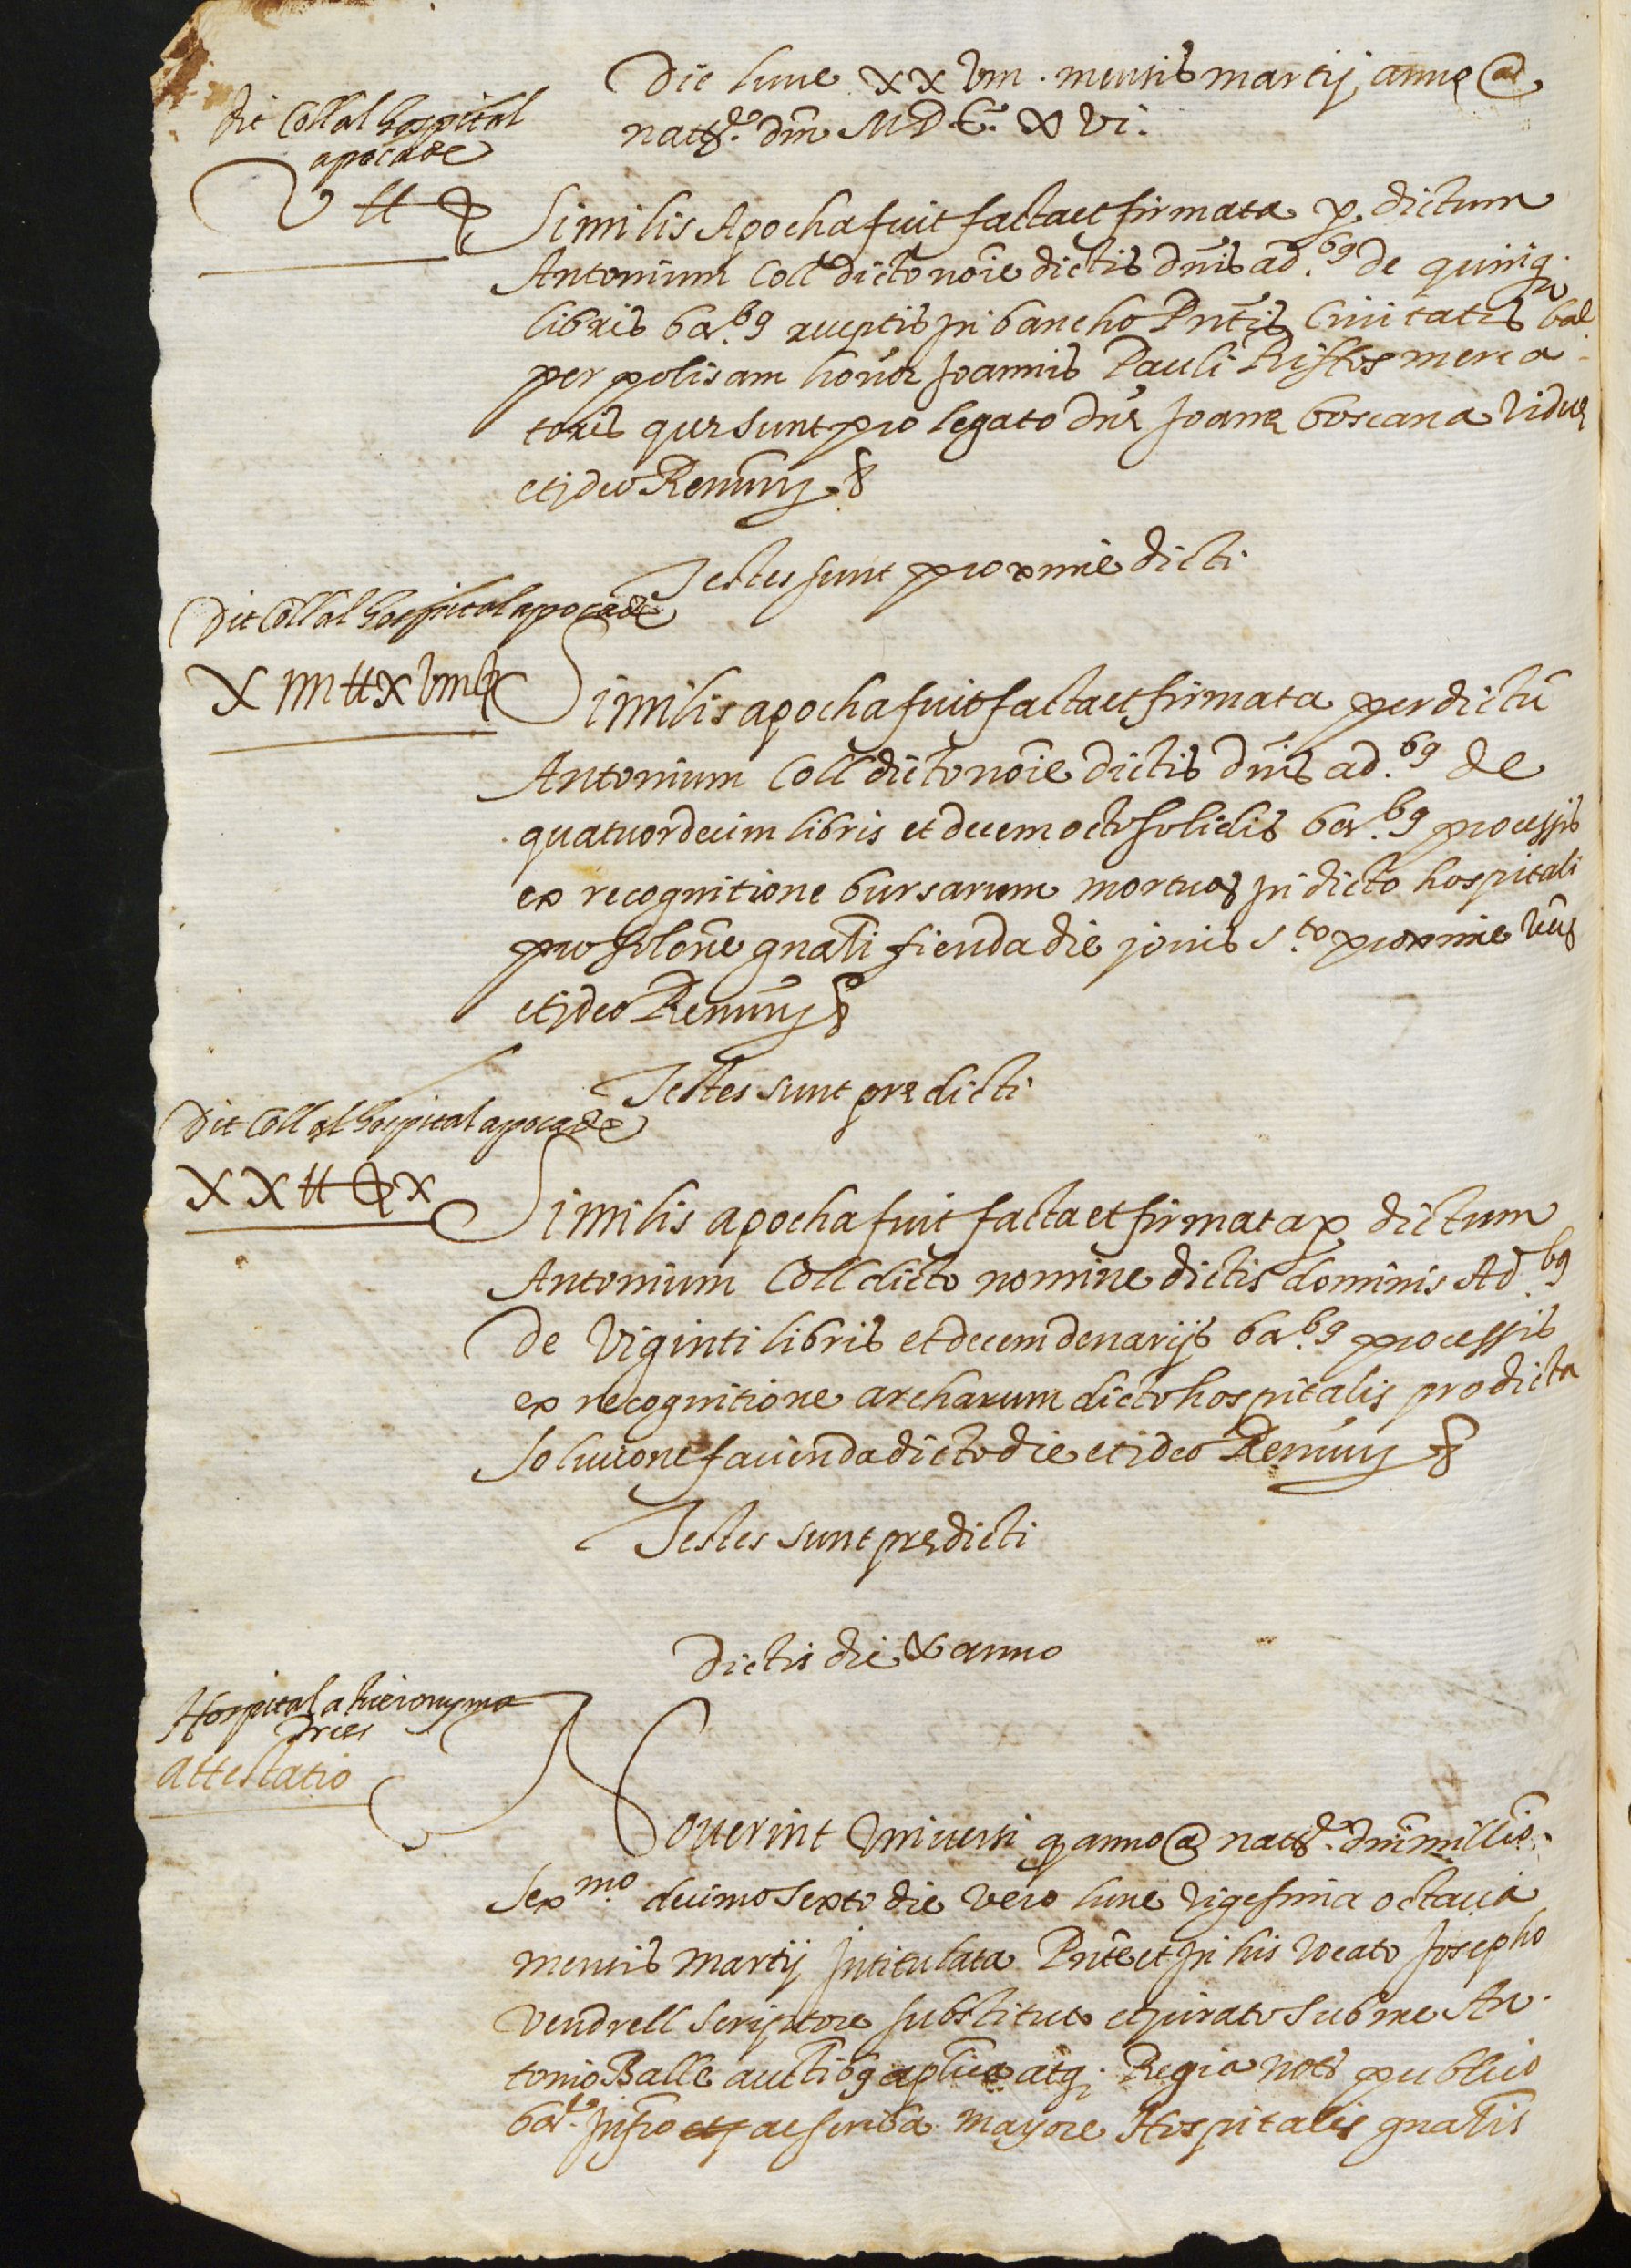 Die lune xxviii. mensis martij anno a
natte. dni MDC. xvi.
Dit Coll al hospital
apoca de
V ℔
Similis Apocha fuit facta et firmata p. dictum
Antonium Coll dicto noīe dictis dnīs ad.bꝰ de quinq.
libris bar.bꝰ receptis in bancho Pntis Civitatis
per polisam honor Joannis Pauli Riffos merca
toris que sunt pro legato dne Joane boscana vidue
et ideo Renuny. &
Testes sunt proxime dicti
Dit Coll al hospital apoca de
X IIII ℔ x viii
Similis apocha fuit facta et firmata per dictū
Antonium Coll dicto noīe dictis dnīs ad.bꝰ de
quatuordecim libris et decem octo solidis bar.bꝰ processis
ex recognitione bursarum mortuoꝝ in dicto hospitali
pro solōne gnāli fienda die jovis s.to proxime
et ideo Renuny &
Testes sunt predicti
Dit Coll al hospital apoca de
XX ℔ x
Similis apocha fuit facta et firmata p dictum
Antonium Coll dicto nomine dictis dominis Ad.bꝰ
de viginti libris et decem denarijs bar.bꝰ processis
ex recognitione archarum dicto hospitalis pro dicta
solucione facienda dicto die et ideo Renuny &
Testes sunt predicti
Dictis die & anno
Hospital a hieronyma
attestatio
Noverint Universi q anno a natte. dni millio.
Sexmo. decimo sexto die vero lune vigesima octava
mensis martij Intitulata Pnte et in his vocato Josepho
Vendrell scriptore substituto et jurato sub me An
tonio Batlle auctibꝰ aplica atq. Regia noto publico
bar. infro ac scriba mayore Hospitalis gnālis